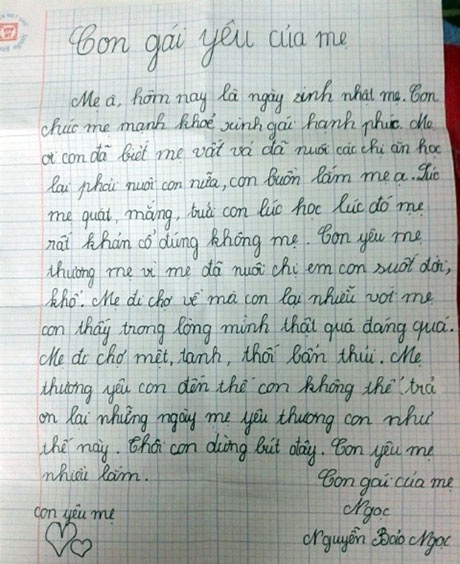 Con gái yêu của mẹ
Mẹ ạ, hôm nay là ngày sinh nhật mẹ. Con
chúc mẹ mạnh khoẻ xinh gái hạnh phúc. Mẹ
ơi con đã biết mẹ vất vả đã nuôi các chị ăn học
lại phải nuôi con nữa, con buồn lắm mẹ ạ. Lúc
mẹ quát, mắng, con lúc học lúc đó mẹ
rất khán cổ đúng không mẹ. Con yêu mẹ
thương mẹ vì mẹ đã nuôi chị em con suốt đời,
khổ. Mẹ đi chợ về mà con lại nhiễu với mẹ
con thấy trong lòng mình thật quá đáng quá.
Mẹ đi chợ mệt, tanh, thối bẩn thỉu. Mẹ
thương yêu con đến thế con không thể trả
ơn lại những ngày mẹ yêu thương con như
thế này. Thôi con dừng bút đây. Con yêu mẹ
nhiều lắm.
Con gái của mẹ
con yêu mẹ
Ngọc
Nguyễn Bảo Ngọc